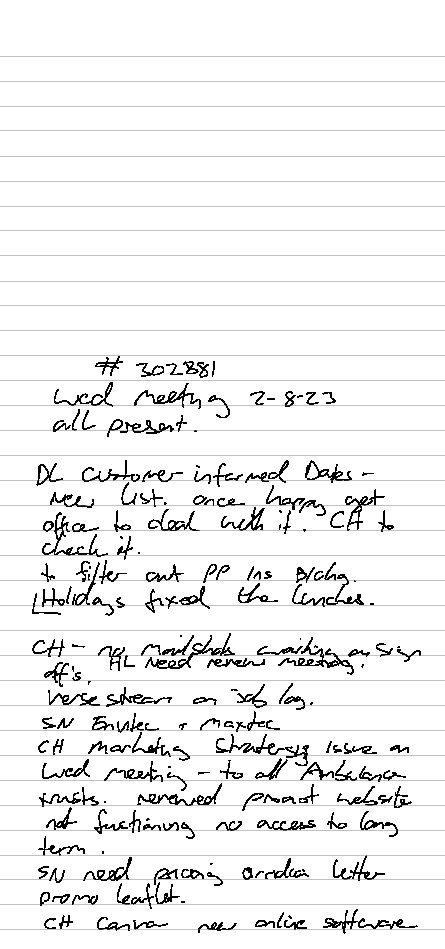 # 302881
Wed meeting 2-8-23
all present.
DL Customer informed Dates -
new list. once happy get
office to deal with it. CH to
check it.
to filter out PP Ins B/chg.
Holidays fixed the lunches.
CH - no mailshots awaiting on sign
off's. HL need renew meeting.
verse stream on job log.
SN Envitec + maxtec
CH marketing issue on
Wed meeting - to all Ambulance
trusts. renewed promot website
not functioning no access to long
term.
SN need pricing letter
promo leaflet.
CH Canva new online software